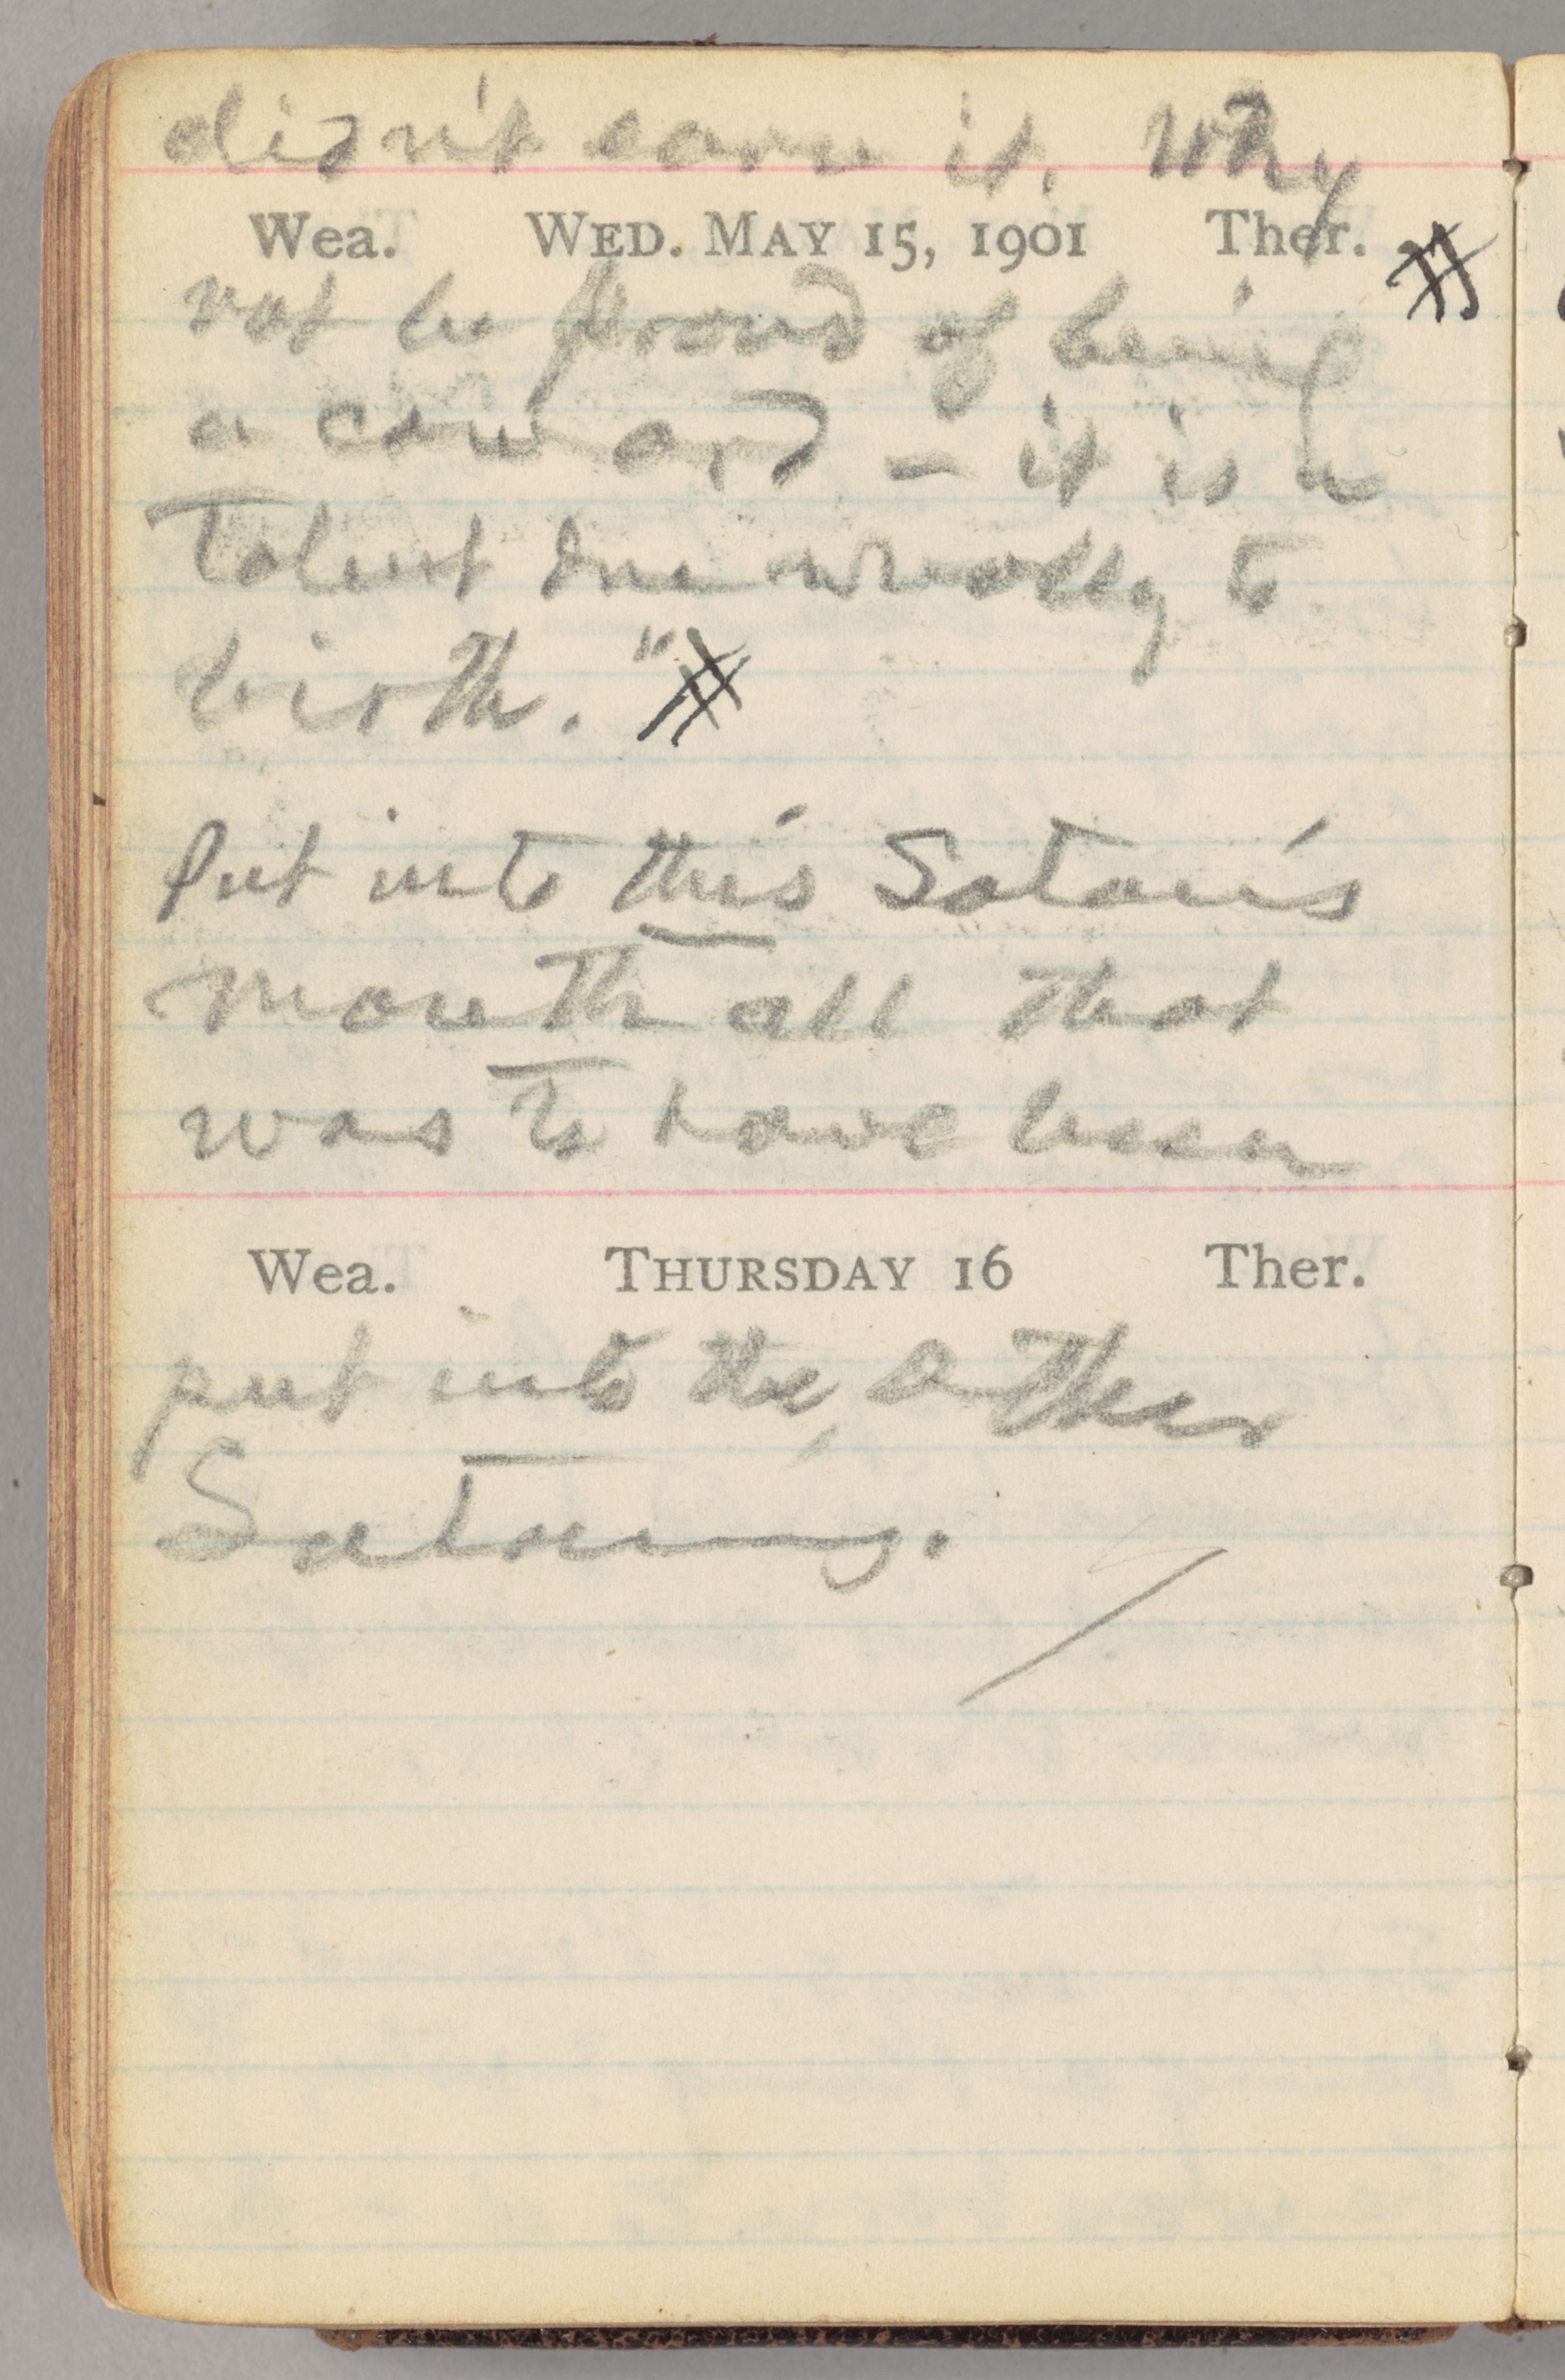 didn't earn it. Why
Wea. WED. MAY 15, 1901 Ther. #
not be proud of being
a coward – it is a
talent due wholly to
birth." #
Put into this Satan's
mouth all that
was to have been
Wea. THURSDAY 16 Ther.
put into the other
Satan's.